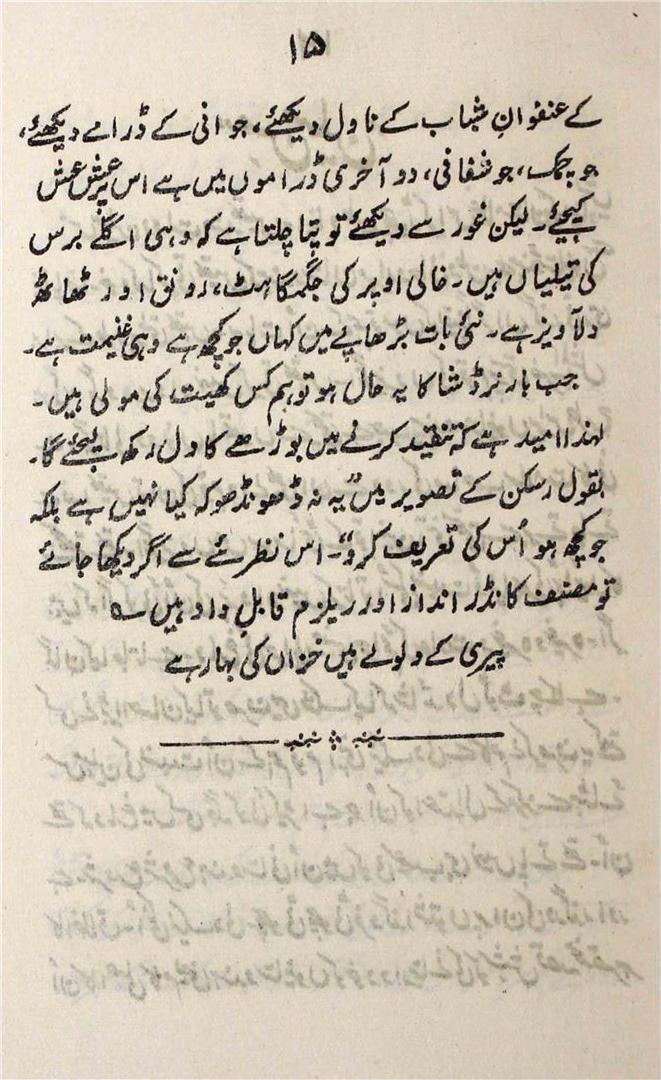 ۱۵
کے عنفوانِ شباب کے ناول دیکھئے، جوانی کے ڈرامے دیکھئے،
جو چمک، جو شفافی، دو آخری ڈراموں میں ہے اس پر عیش عیش
کیجئے۔ لیکن غور سے دیکھئے تو پتا چلتا ہے کہ وہی اگلے برس
کی تیلیاں ہیں۔ خالی اوپر کی جگمگاہٹ، رونق اور ٹھاٹھ
دلآویز ہے۔ نئی بات بڑھاپے میں کہاں جو کچھ ہے وہی غنیمت ہے۔
جب بارنرڈ شا کا یہ حال ہو تو ہم کس کھیت کی مولی ہیں۔
لہذا امید ہے کہ تنقید کرنے میں بوڑھے کا دل رکھ لیجئے گا۔
بقول رسکن کے تصویر میں "یہ نہ ڈھونڈھو کہ کیا نہیں ہے بلکہ
جو کچھ ہو اُس کی تعریف کرو"۔ اس نظرئے سے اگر دیکھا جائے
تو مصنف کا نڈر انداز اور ریلزم قابلِ داد ہیں ؎
پیری کے ولولے ہیں خزاں کی بہار ہے